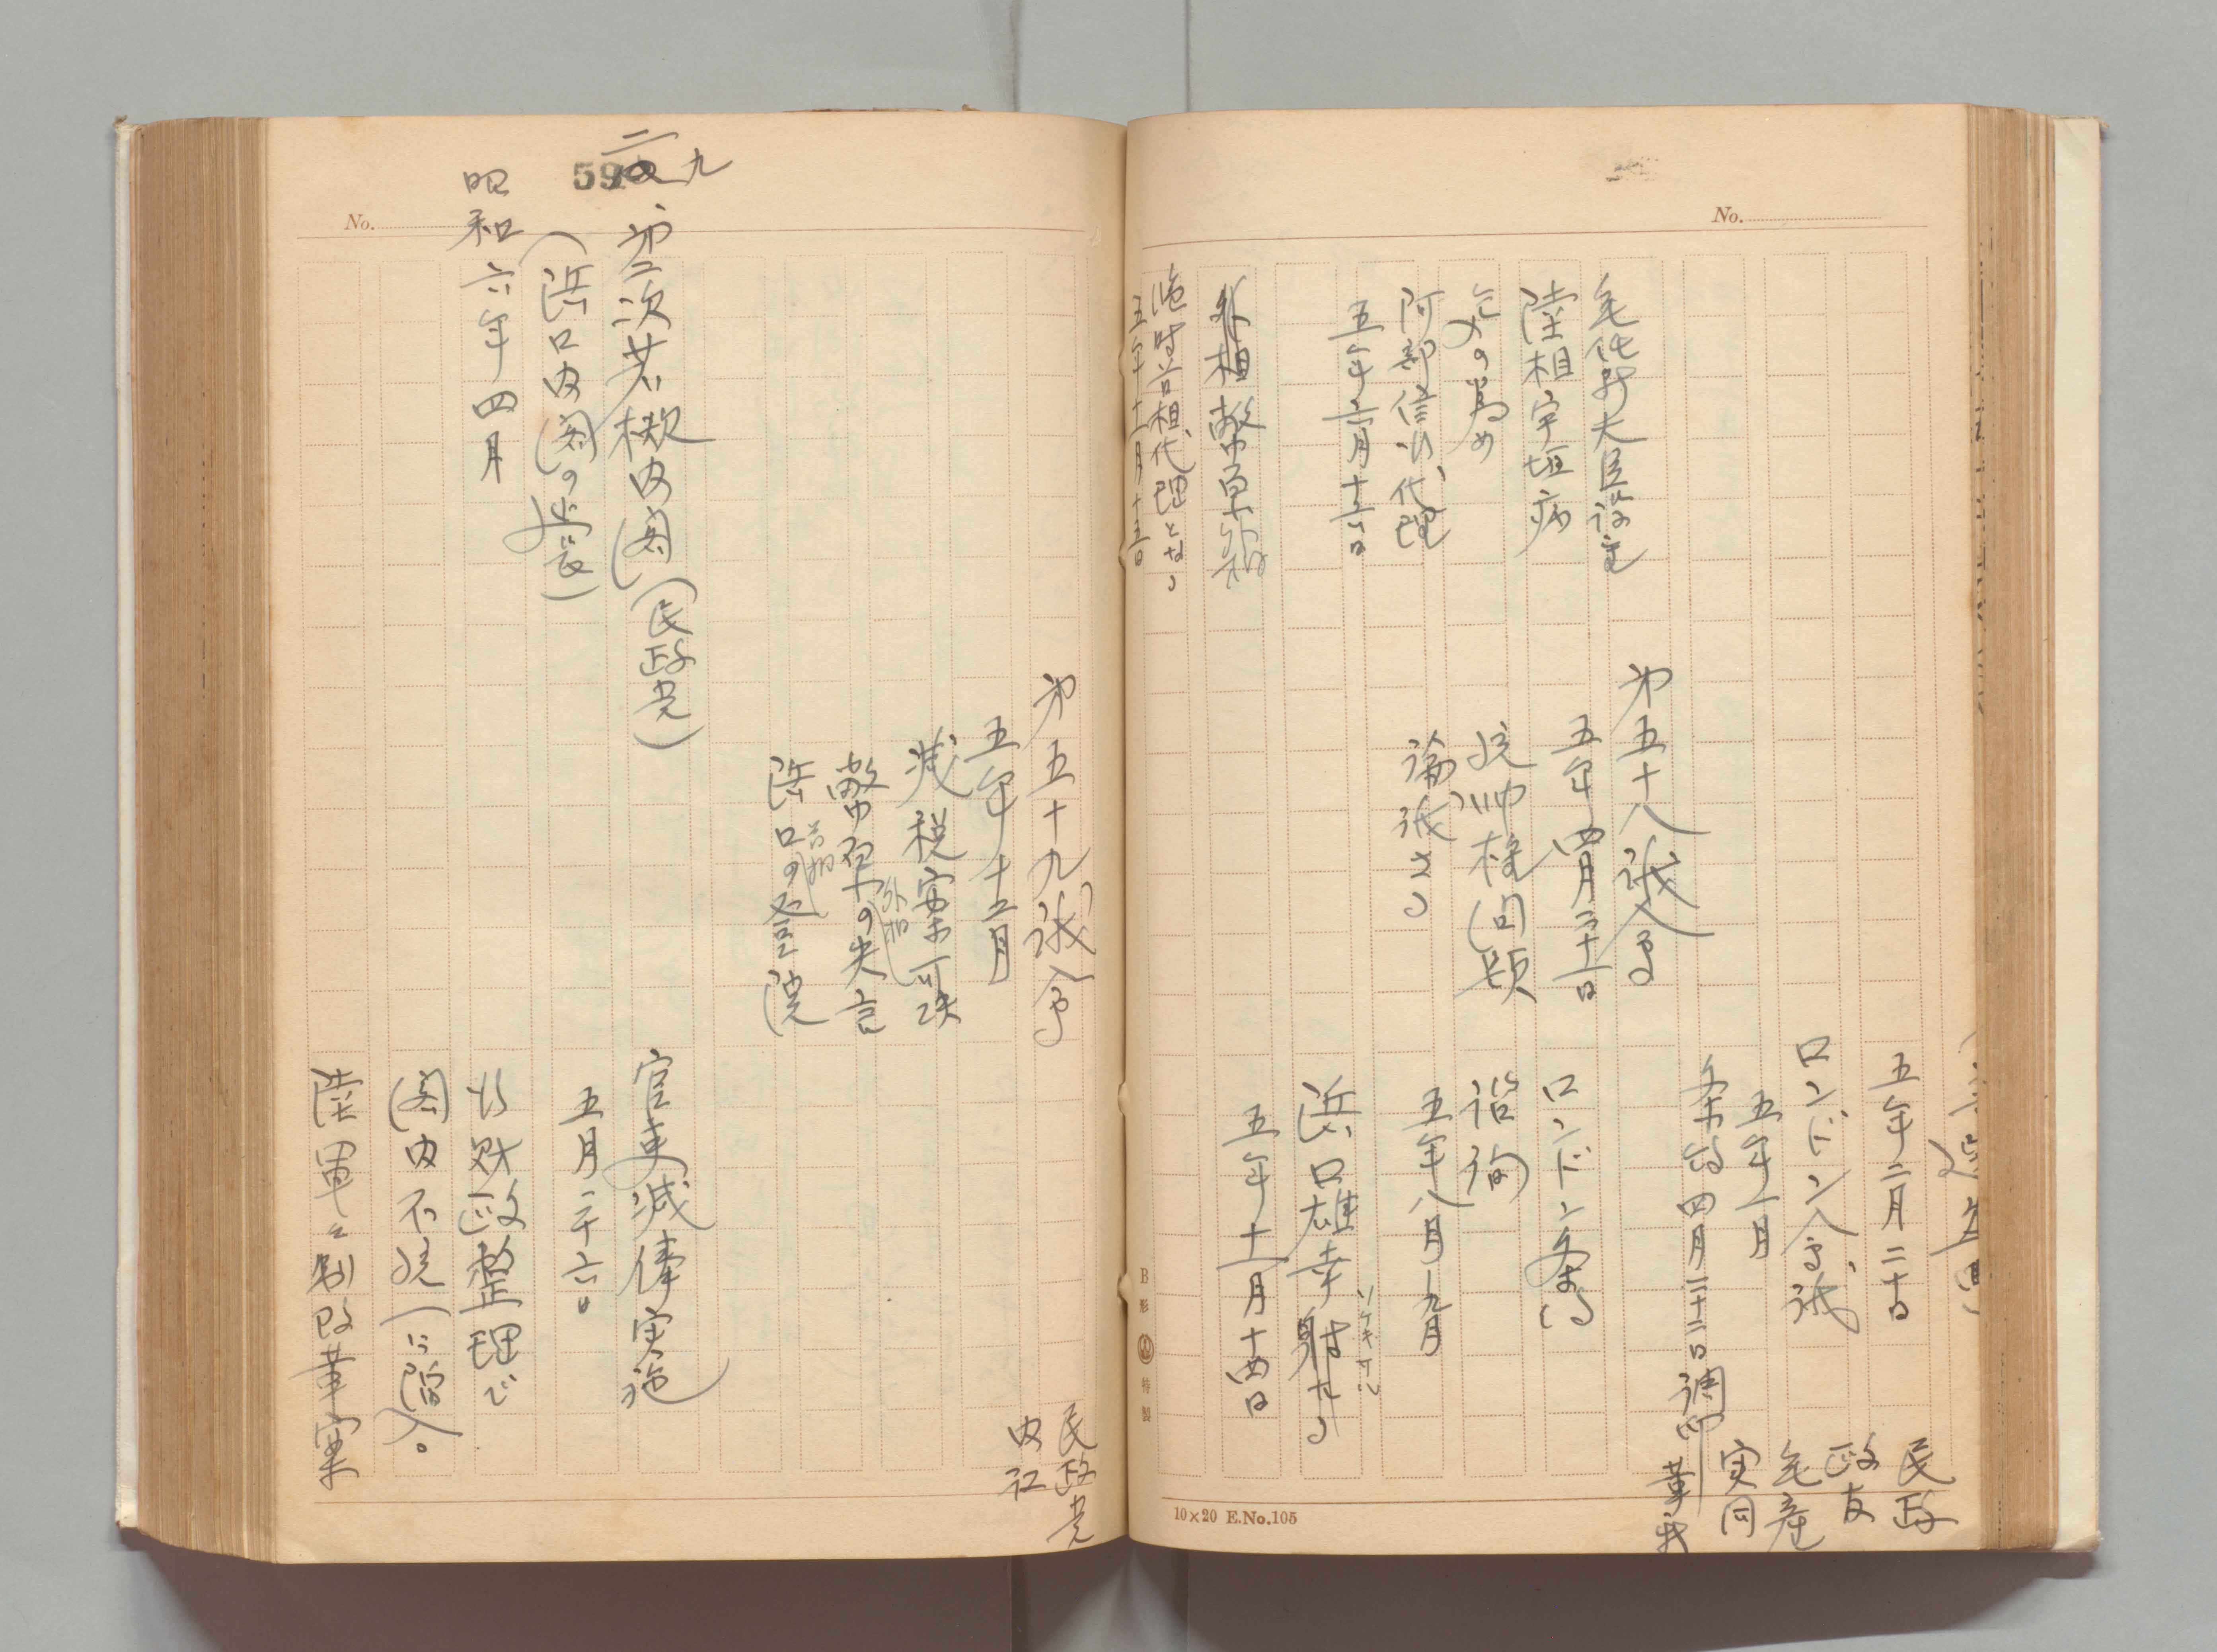 No.
五年二月二十日
ロンドン会議
五年一月
条約四月二十二日調印
民政
政友
無産
実同
革新
無任所大臣設置
陸相宇垣病
気の為め
阿部信行代理
五年六月十六日
第五十八議会
五年四月二十一日
統帥権問題
論議さる
ロンドン条約
諮詢
五年八月―九月
浜口雄幸射たる
ソゲキサル
五年十一月十四日
外相幣原
臨時首相代理となる
五年十一月十五日
B形
特製
10×20 E.No.105
59
二九
No.
第五十九議会
五年十二月
減税案可決
幣原の失言
外相
浜口の登院
首相
民政党
内訌
第二次若槻内閣(民政党)
(浜口内閣の延長)
昭和六年四月
官吏減俸実施
五月二十六日
行財政整理で
閣内不統一に陥入。
陸軍々制改革案